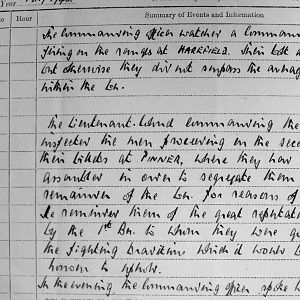 Year
Date Hour Summary of Events and Information
The Commanding Officer watched a Comman
firing on the range at HAREFIELD. Their
but otherwise they did not surpass the averag
within the Bn.
The Lieutenant-Colonel commanding the
inspected the men proceeding on the sec
their billets at PINNER, where they have
assembled in order to segregate them
remainder of the Bn. for reasons of
He reminded them of the great reputati
by the 1st Bn. to whom they were
the fighting traditions which it would b
honour to uphold.
In the evening the Commanding Officer spoke